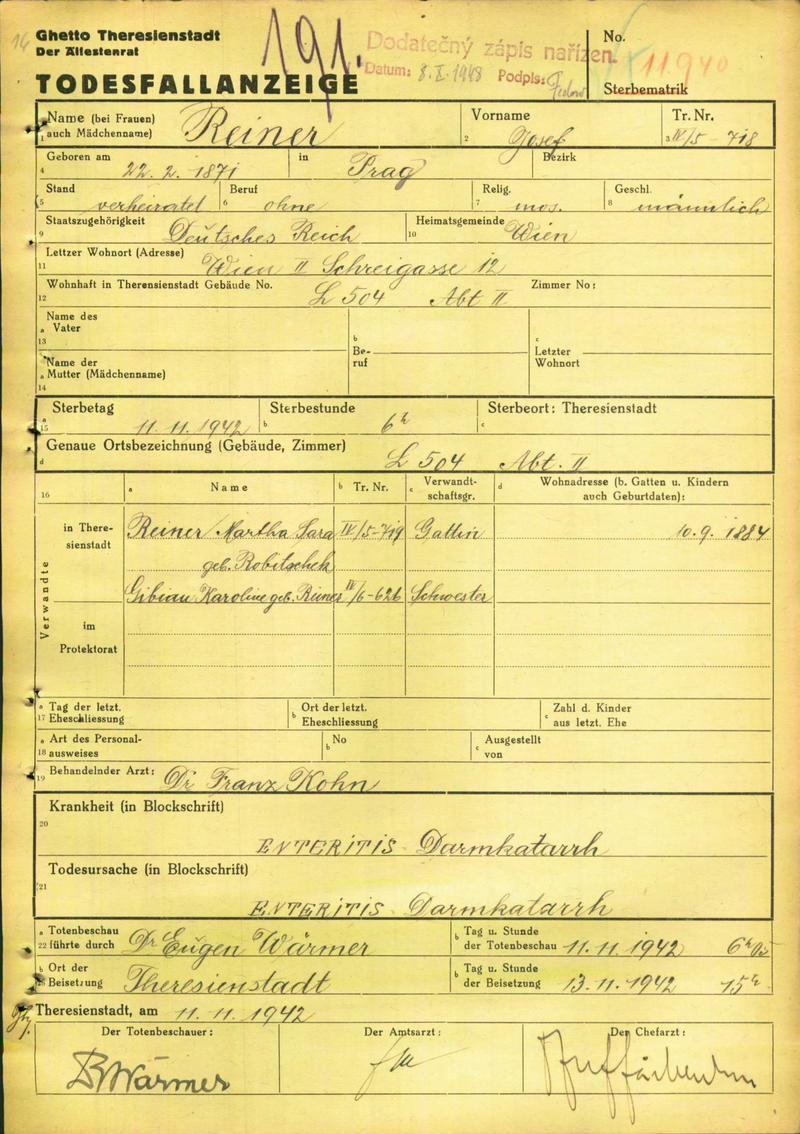 16
Ghetto Theresienstadt
Der Ältestenrat
TODESFALLANZEIGE
191.
Dodatečný zápis nařízen.
Datum: 8.I.1948 Podpis:
No.
11940
Sterbematrik
Name (bei Frauen) auch Mädchenname) Reiner
1
Vorname Josef
2
Tr. Nr. IV/5-718
3
Geboren am 22.2.1871 in Prag Bezirk
4
Stand verheiratet Beruf ohne Relig. mos. Geschl. männlich
5 6 7 8
Staatszugehörigkeit Deutsches Reich Heimatsgemeinde Wien
9 10
Lettzer Wohnort (Adresse) Wien II Schreigasse 12
11
Wohnhaft in Theresienstadt Gebäude No. L 504 Abt II Zimmer No:
12
Name des
a Vater
13
b Beruf
c Letzter Wohnort
Name der
a Mutter (Mädchenname)
14
Sterbetag 11.11.1942 Sterbestunde 6h Sterbeort: Theresienstadt
a 15 b c
Genaue Ortsbezeichnung (Gebäude, Zimmer) L 504 Abt. II
d
16 a Name b Tr. Nr. c Verwandtschaftsgr. d Wohnadresse (b. Gatten u. Kindern auch Geburtdaten):
Verwandte
in Theresienstadt
Reiner Martha Sara IV/5-719 Gattin 10.9.1884
geb. Robitschek
Gibian Karoline geb. Reiner IV/6-626 Schwester
im Protektorat
a Tag der letzt. b Ort der letzt. c Zahl d. Kinder
17 Eheschliessung Eheschliessung aus letzt. Ehe
a Art des Personal- b No c Ausgestellt
18 ausweises von
19 Behandelnder Arzt: Dr Franz Kohn
Krankheit (in Blockschrift)
20
ENTERITIS - Darmkatarrh
Todesursache (in Blockschrift)
21
ENTERITIS - Darmkatarrh
a Totenbeschau b Tag u. Stunde
22 führte durch Dr Eugen Wärmer der Totenbeschau 11.11.1942 6h 05
b Ort der b Tag u. Stunde
Beisetzung Theresienstadt der Beisetzung 13.11.1942 15h
Theresienstadt, am 11.11.1942
Der Totenbeschauer: Der Amtsarzt: Der Chefarzt:
Dr Wärmer